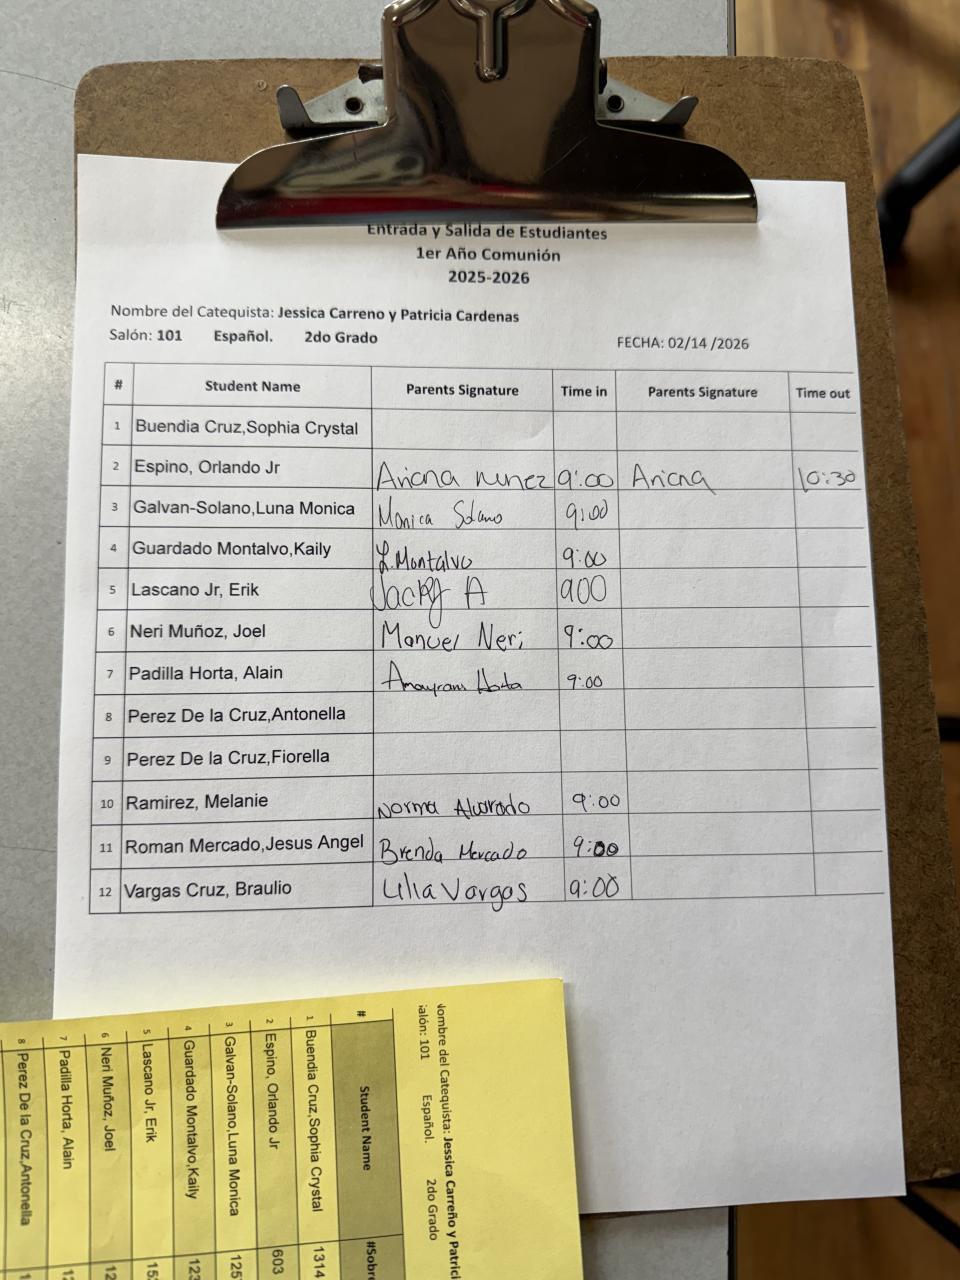 Entrada y Salida de Estudiantes
1er Año Comunión
2025-2026
Nombre del Catequista: Jessica Carreno y Patricia Cardenas
Salón: 101 Español. 2do Grado FECHA: 02/14 /2026
# Student Name Parents Signature Time in Parents Signature Time out
1 Buendia Cruz,Sophia Crystal
2 Espino, Orlando Jr Ariana nunez 9:00 Ariana 10:30
3 Galvan-Solano,Luna Monica Monica Solano 9:00
4 Guardado Montalvo,Kaily Y.Montalvo 9:00
5 Lascano Jr, Erik Jacky A 900
6 Neri Muñoz, Joel Manuel Neri 9:00
7 Padilla Horta, Alain Amayrani Horta 9:00
8 Perez De la Cruz,Antonella
9 Perez De la Cruz,Fiorella
10 Ramirez, Melanie Norma Alvarado 9:00
11 Roman Mercado,Jesus Angel Brenda Mercado 9:00
12 Vargas Cruz, Braulio Lilia Vargas 9:00
Nombre del Catequista: Jessica Carreño y Patrici
Salón: 101 Español. 2do Grado
# Student Name #Sobre
1 Buendia Cruz,Sophia Crystal 1314
2 Espino, Orlando Jr 603
3 Galvan-Solano,Luna Monica 125
4 Guardado Montalvo,Kaily 123
5 Lascano Jr, Erik 15
6 Neri Muñoz, Joel 12
7 Padilla Horta, Alain 1
8 Perez De la Cruz,Antonella 1